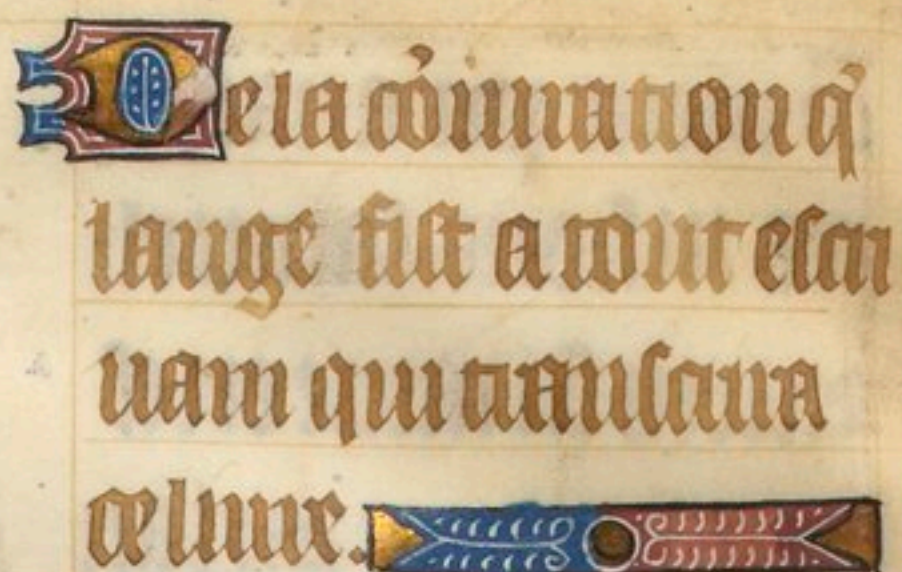 De la cōiuration q̄
lange fiſt a tout eſcri
uain qui tranſcriura
ce liure.